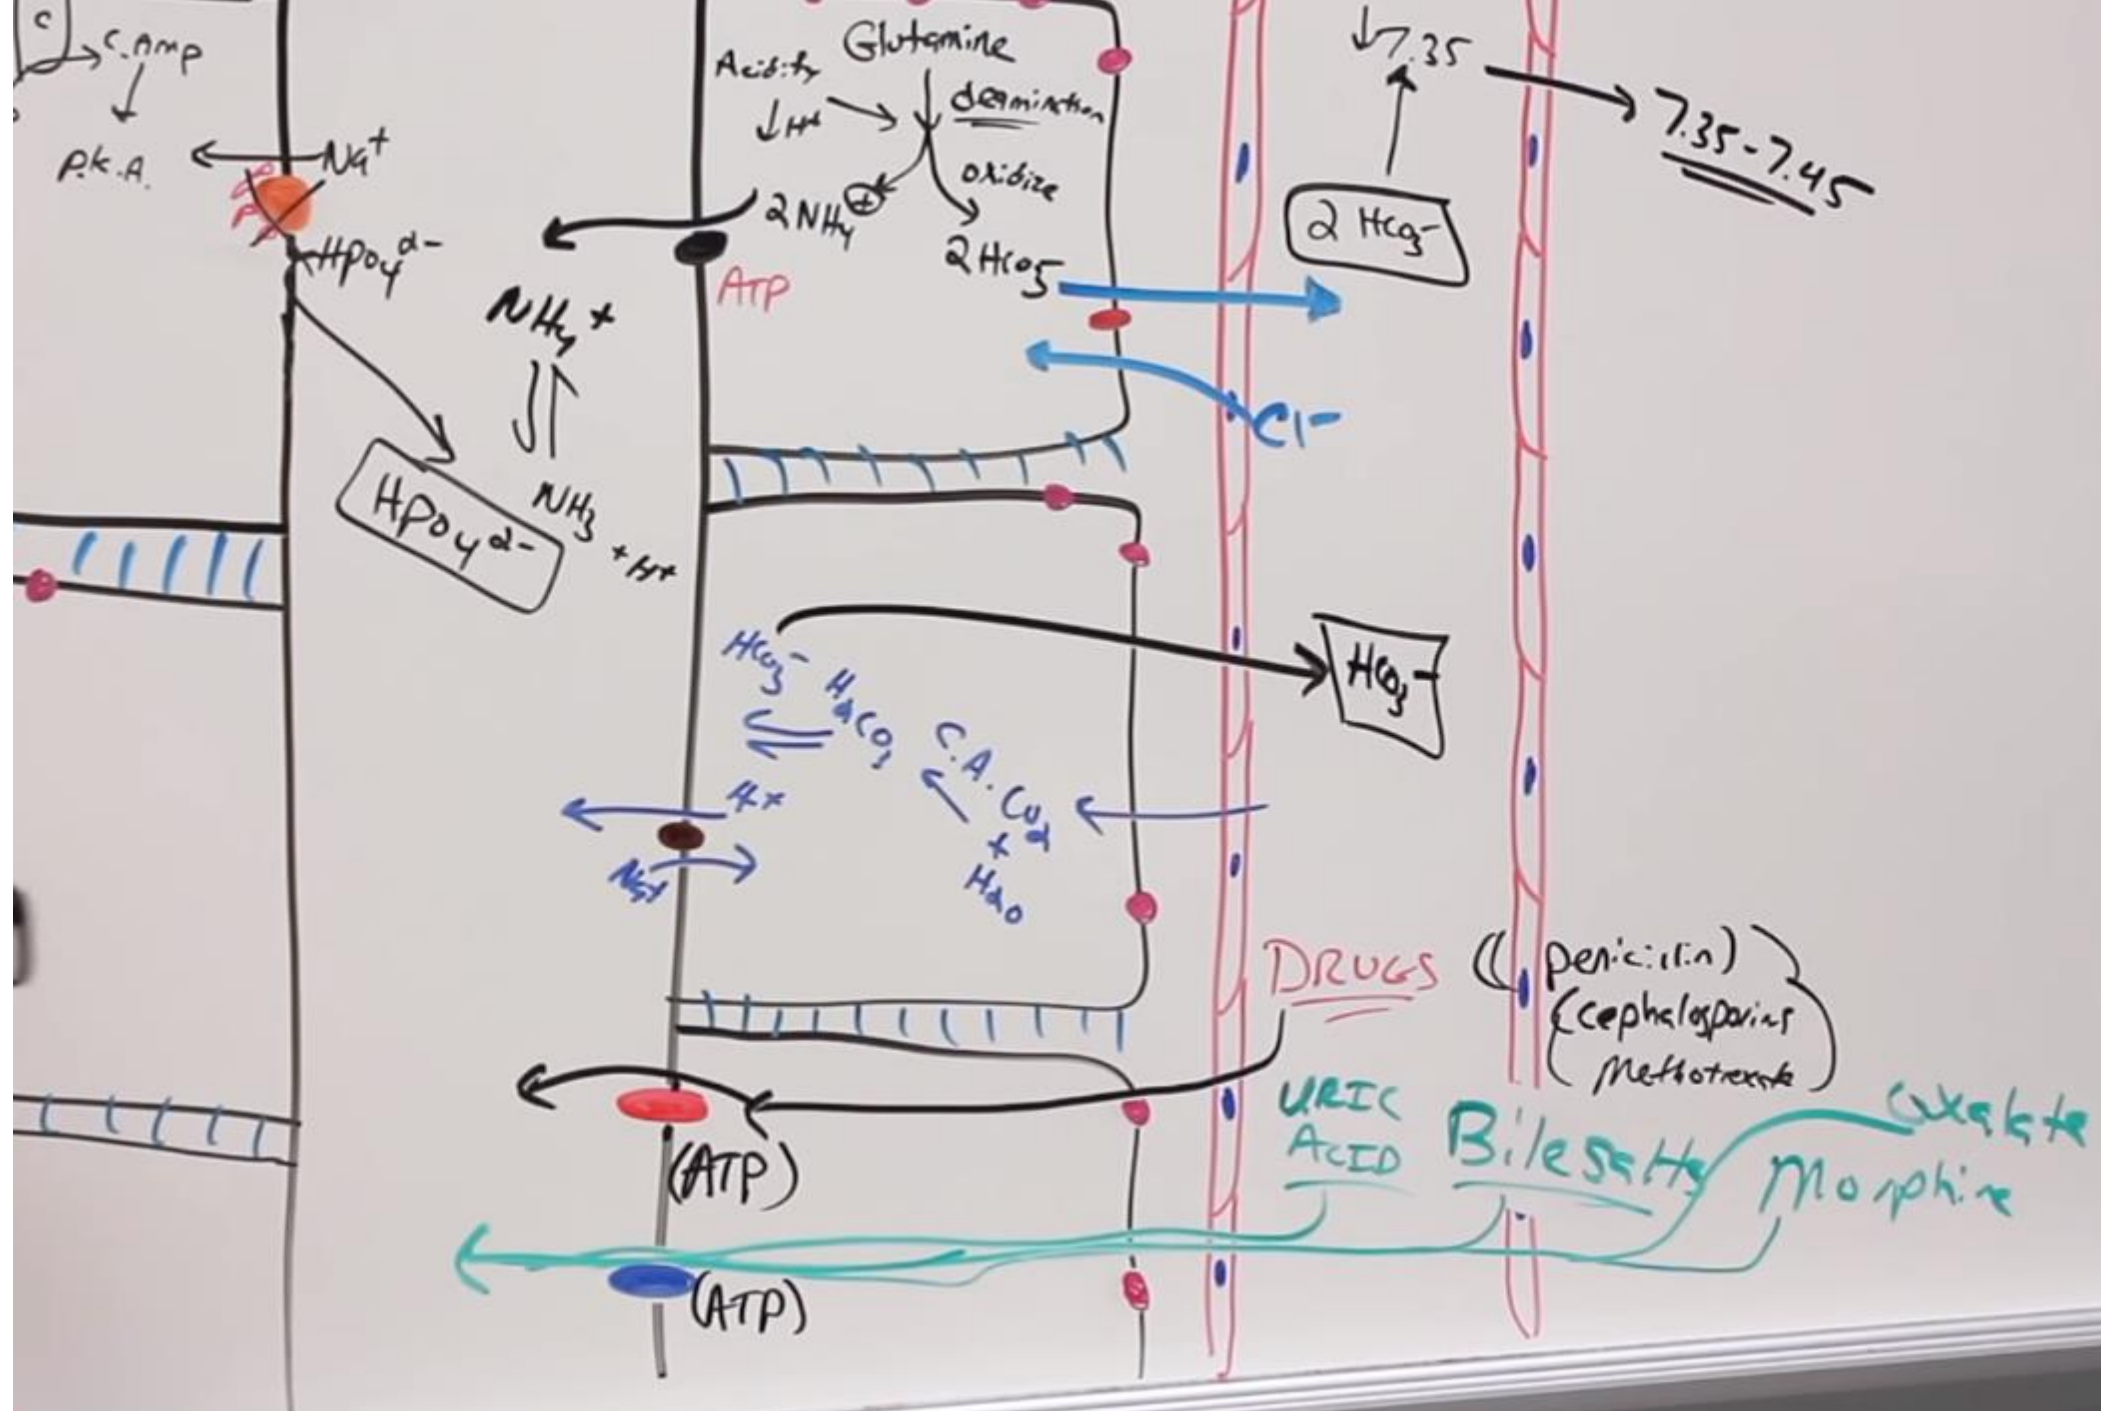 C
C.Amp
P.K.A.
Na+
HPO4 2-
HPO4 2-
NH4+
NH3
+H+
Glutamine
Acidity
↓H+
deamination
oxidize
2NH4 +
2HCO3
ATP
Cl-
↓7.35
7.35-7.45
2 HCO3-
HCO3-
H2CO3
C.A.
CO2
+
H2O
H+
Na+
HCO3-
DRUGS
((penicillin)
(cephalosporins
Methotrexate)
(ATP)
URIC
ACID
Bile salts
oxalate
Morphine
(ATP)